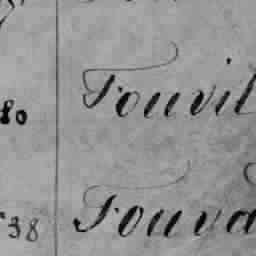 80 Fouvil
38 Fouva